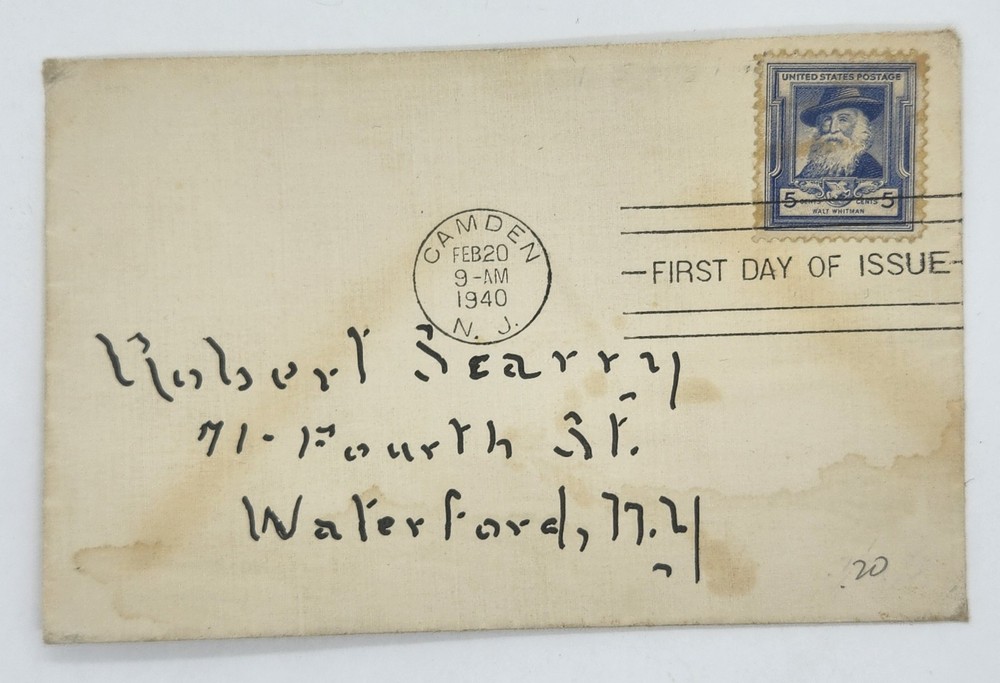 UNITED STATES POSTAGE
5 CENTS CENTS 5
WALT WHITMAN
CAMDEN
FEB 20
9-AM
1940
N. J.
FIRST DAY OF ISSUE
Robert Scarry
71- Fourth St.
Waterford, N.Y
20